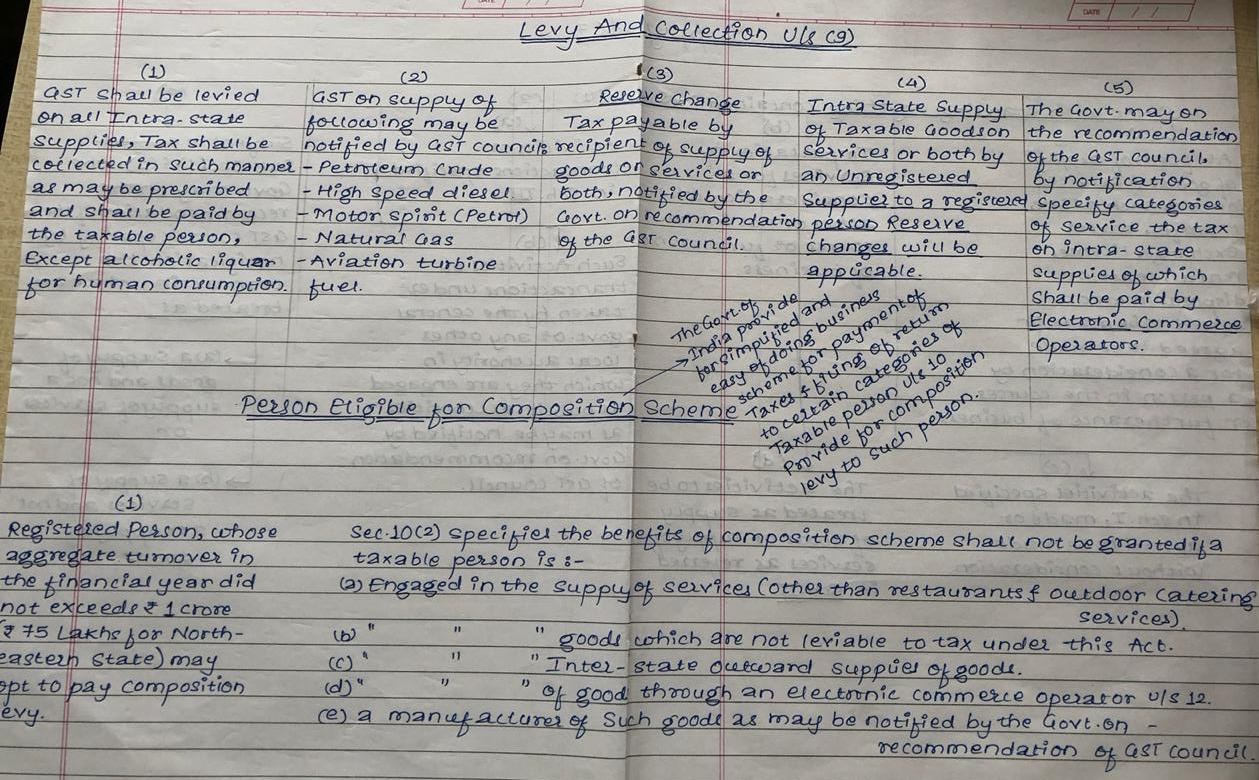 DATE
DATE
Levy And Collection U/s (9)
(1)
GST shall be levied
on all Intra-state
supplies, Tax shall be
collected in such manner
as may be prescribed
and shall be paid by
the taxable person,
Except alcoholic liquar
for human consumption.
(2)
GST on supply of
following may be
notified by GST council:
- Petroleum Crude
- High Speed diesel
- Motor spirit (Petrol)
- Natural Gas
- Aviation turbine
fuel.
(3)
Reserve change
Tax payable by
recipient of supply of
goods or services or
both, notified by the
Govt. on recommendation
of the GST Council.
(4)
Intra State Supply
of Taxable Goods on
services or both by
an Unregistered
Supplier to a registered
person Reserve
changes will be
applicable.
(5)
The Govt. may on
the recommendation
of the GST council,
by notification
specify categories
of service the tax
on intra-state
supplies of which
shall be paid by
Electronic Commerce
Operators.
The Govt. of
India provide
for simplified and
easy of doing business
scheme for payment of
Taxes & filing of return
to certain categories of
Taxable person U/s 10
Provide for composition
levy to such person.
Person Eligible for Composition Scheme
(1)
Registered Person, whose
aggregate turnover in
the financial year did
not exceeds ₹ 1 crore
(₹ 75 Lakhs for North-
eastern State) may
opt to pay composition
levy.
Sec.10(2) specifies the benefits of composition scheme shall not be granted if a
taxable person is :-
(a) Engaged in the supply of services (other than restaurants & outdoor catering
services).
(b) " " " goods which are not leviable to tax under this Act.
(c) " " " Inter-state outward supplies of goods.
(d) " " " of good through an electronic commerce operator U/S 12.
(e) a manufacturer of such goods as may be notified by the Govt. on -
recommendation of GST council